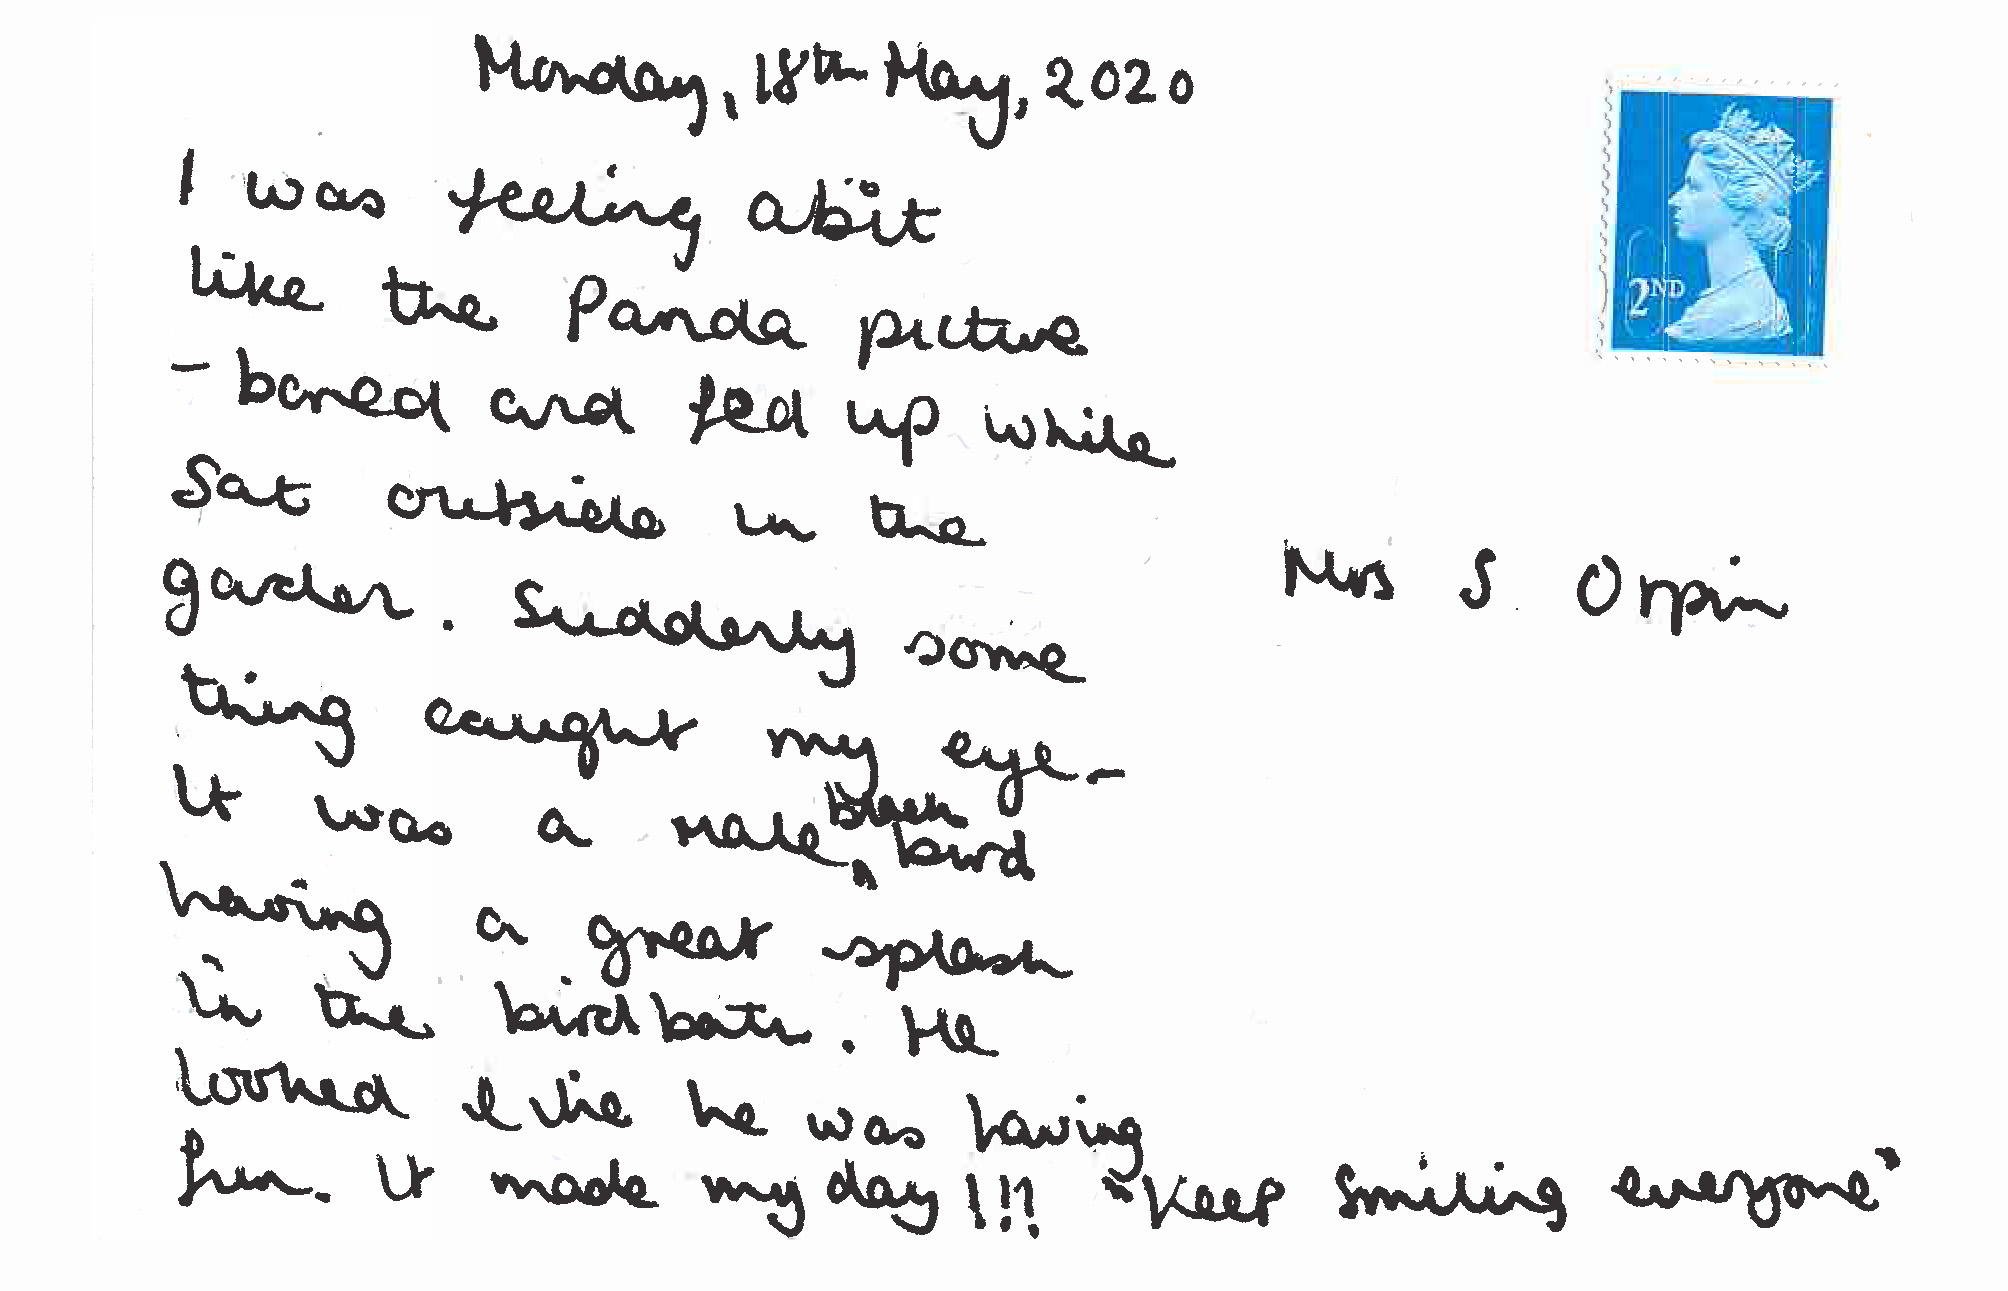 Monday, 18th May, 2020
2ND
I was feeling abit
like the Panda picture
- bored and fed up while
Sat outside in the
garden. Suddenly some
thing caught my eye-
It was a male black bird
having a great splash
in the birdbath. He
looked like he was having
fun. It made my day!!!
"Keep smiling everyone"
Mrs S Orpin